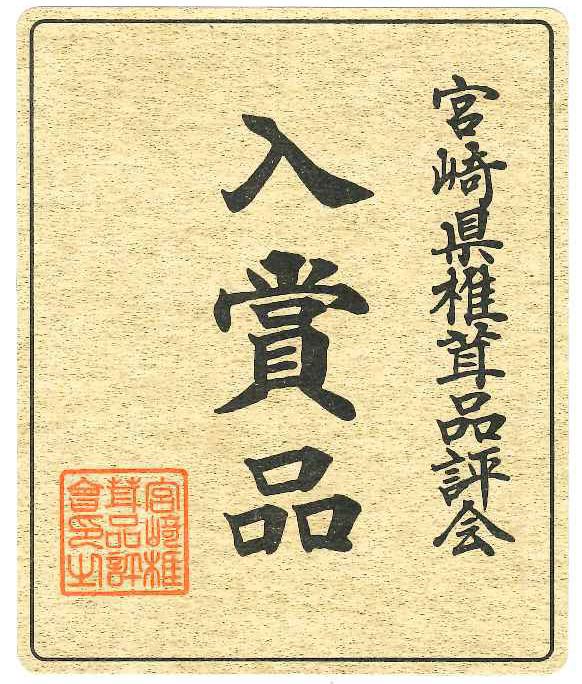 宮崎県椎茸品評会
入賞品
宮崎椎
茸品評
會印之